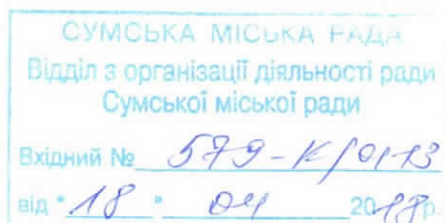 СУМСЬКА МІСЬКА РАДА
Відділ з організації діяльності ради
Сумської міської ради
Вхідний № 579-К/01-13
від "18" 04 2018р.